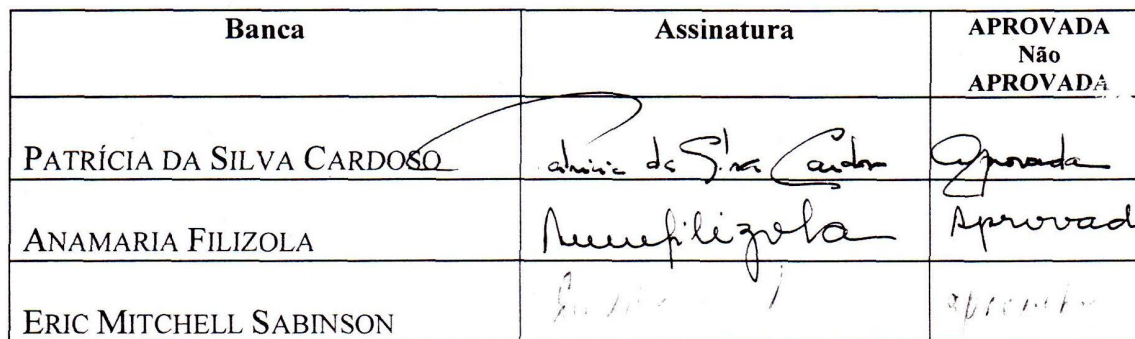 Banca Assinatura APROVADA
Não
APROVADA
PATRÍCIA DA SILVA CARDOSO Patrícia da Silva Cardoso Aprovada
ANAMARIA FILIZOLA Anamafilizola Aprovad
ERIC MITCHELL SABINSON